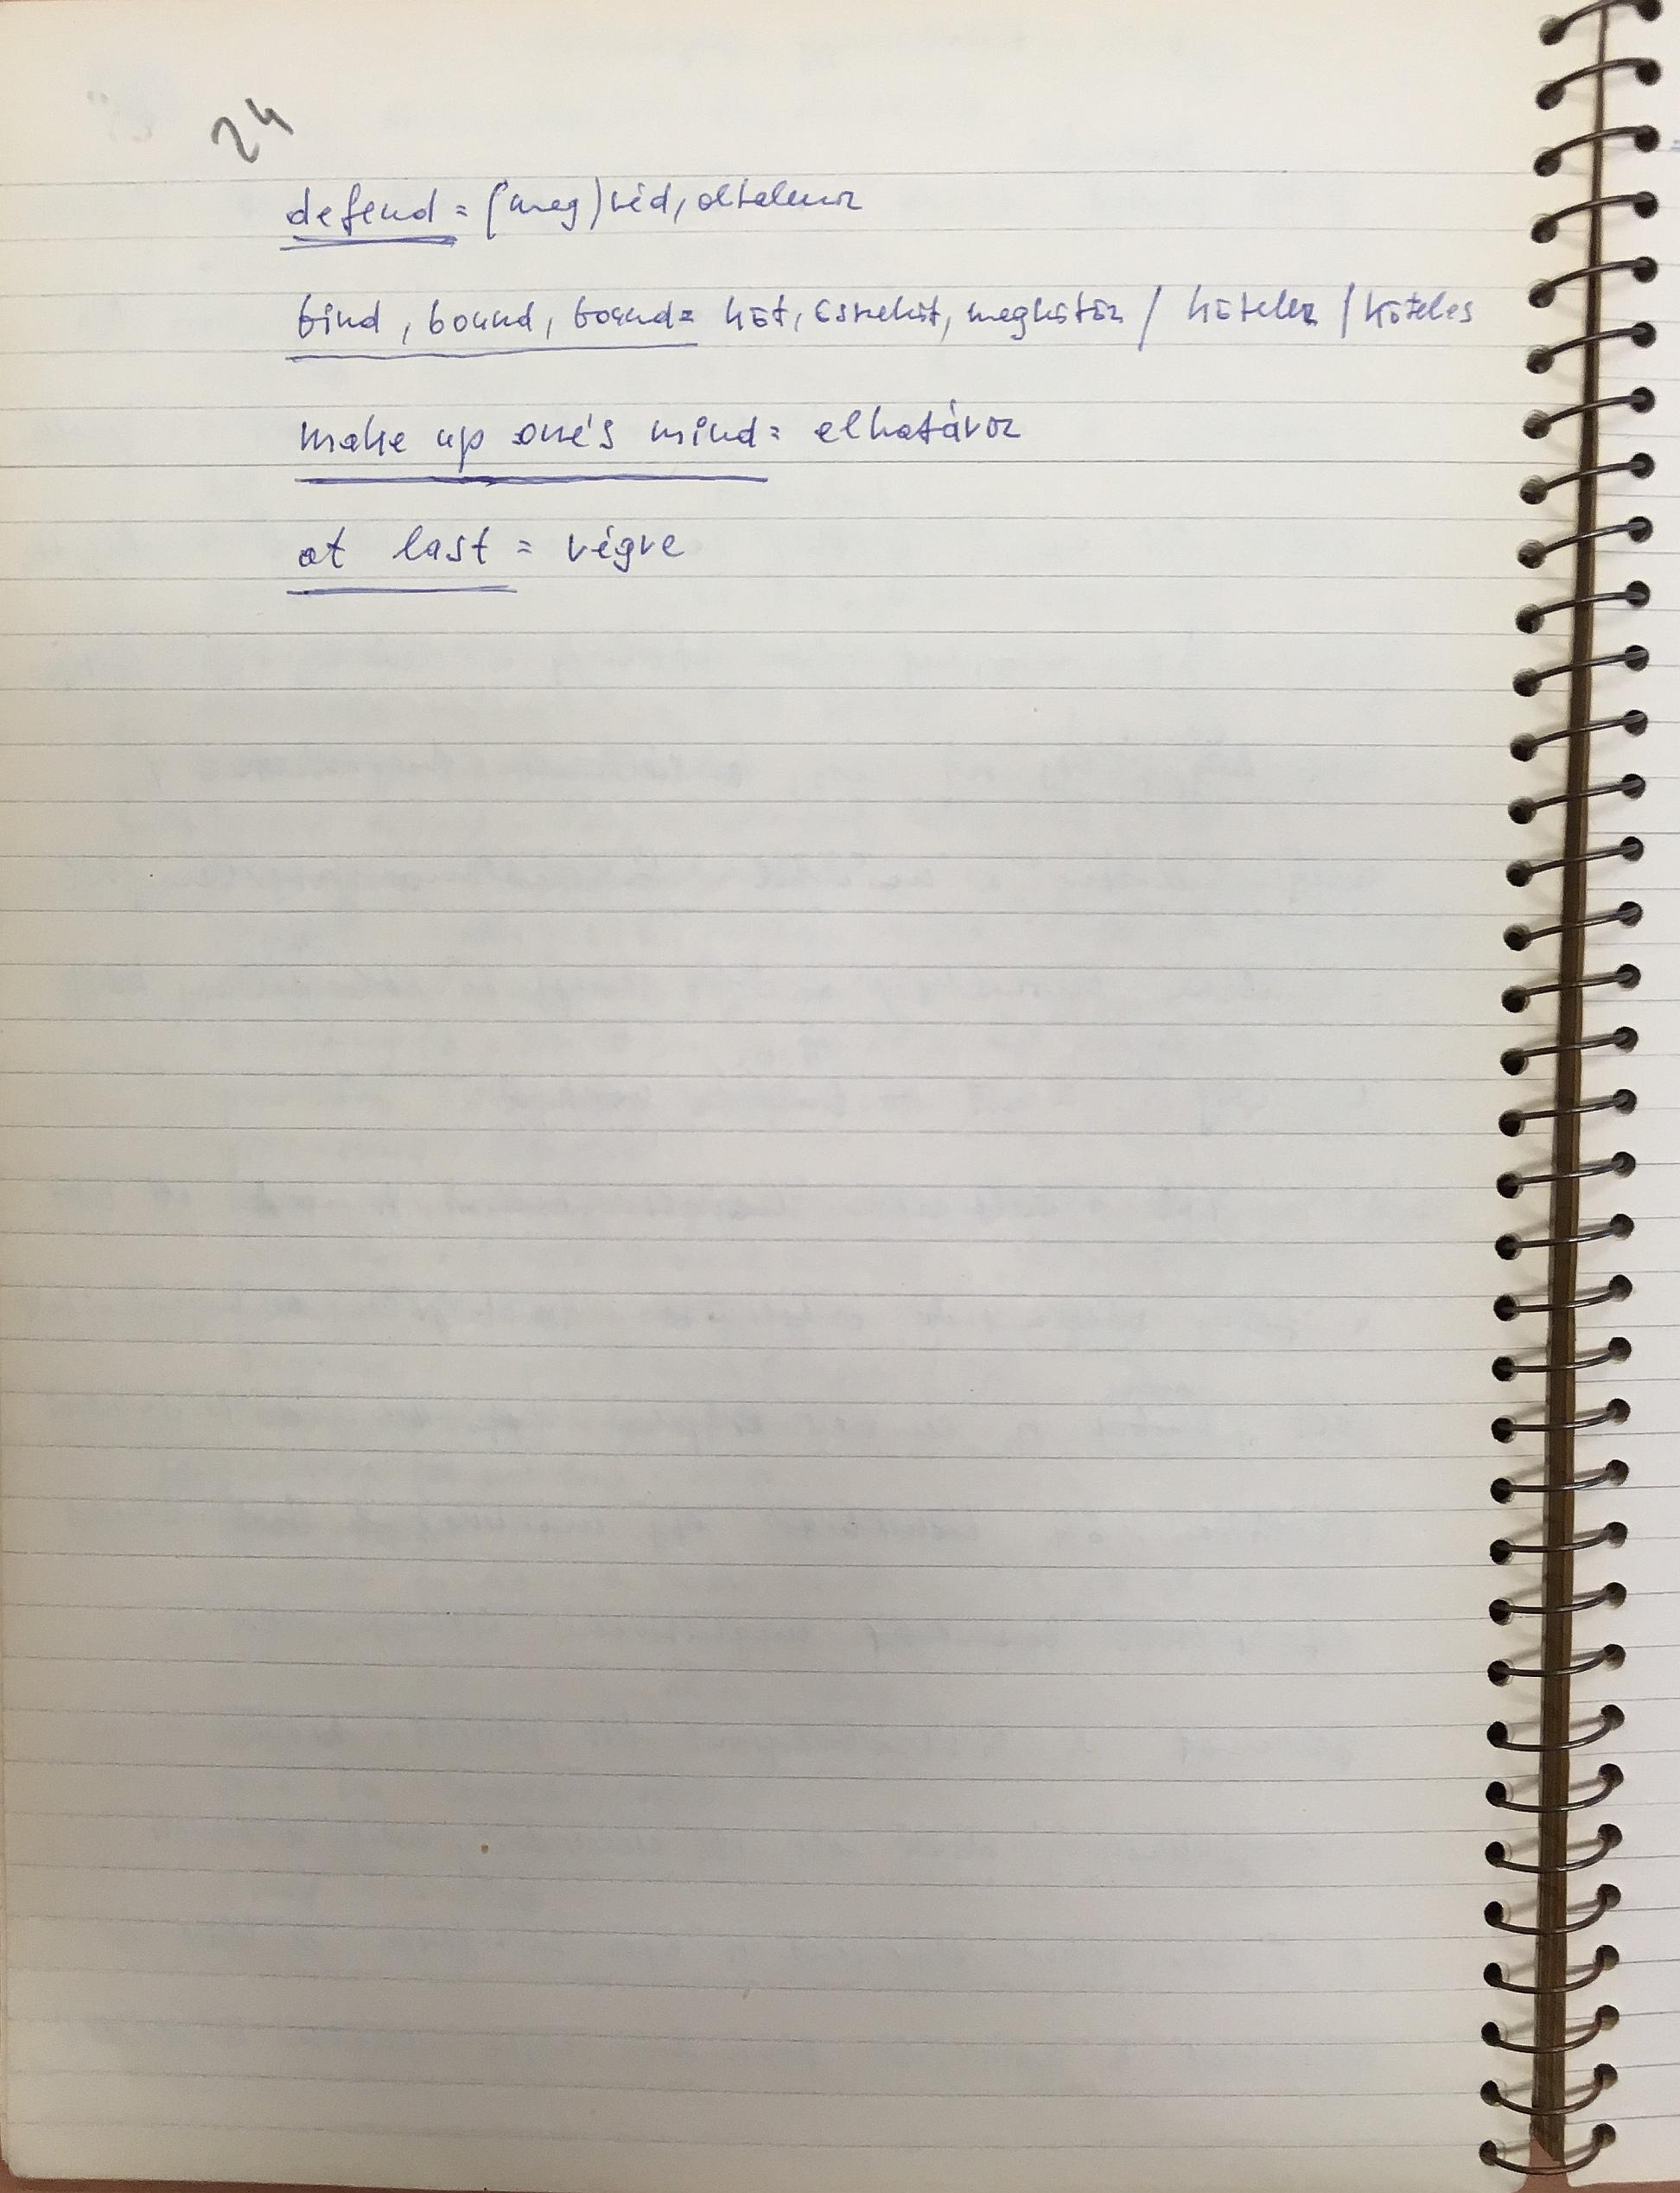 24
defend = (meg)véd, oltalmaz
bind, bound, bound = köt, összeköt, megkötöz / kötelez / köteles
make up one's mind = elhatároz
at last = végre